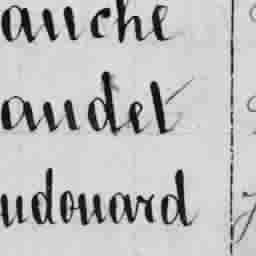 auche
audet
udouard